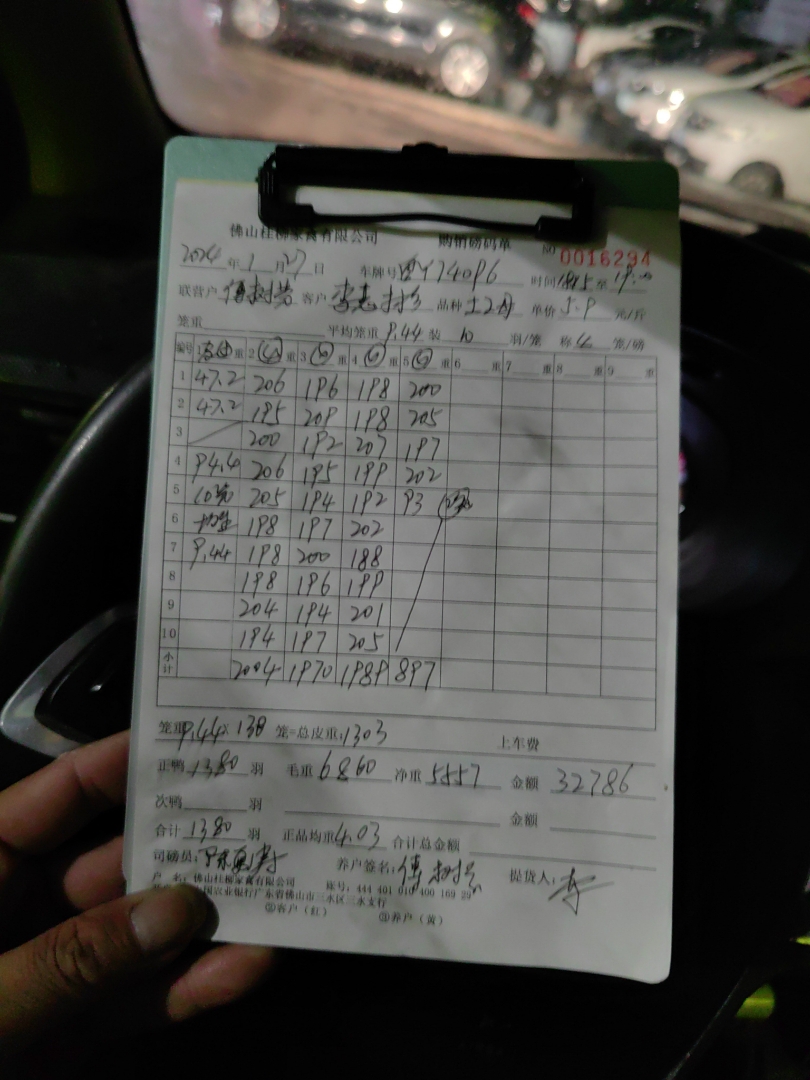 佛山桂柳家禽有限公司 购销磅码单 NO 0016294
2024年1月27日 车牌号 74096 时间 至 19:00
联营户 傅树芳 客户 李志 品种 土2母 单价 5.9 元/斤
笼重 平均笼重 9.44 装 10 羽/笼 称 笼/磅
编号 1 重 2 重 3 重 4 重 5 重 6 重 7 重 8 重 9 重
1 47.2 206 196 198 200
2 47.2 195 209 198 205
3 200 192 207 197
4 94.4 206 195 199 202
5 10笼 205 194 192 93
6 均重 198 197 202
7 9.44 198 200 188
8 198 196 199
9 204 194 201
10 194 197 205
小计 2004 1970 1989 897
笼重 9.44 × 138 笼=总皮重: 1303 上车费
正鸭 1380 羽 毛重 6860 净重 5557 金额 32786
次鸭 羽 金额
合计 1380 羽 正品均重 4.03 合计总金额
司磅员: 养户签名: 傅树芳 提货人: 李
户 名: 佛山桂柳家禽有限公司 账号: 444 401 010 400 169 29
农业银行广东省佛山市三水区三水支行
②客户（红） ③养户（黄）